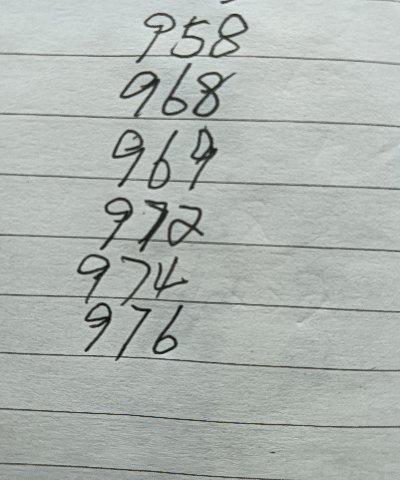 958
968
969
972
974
976